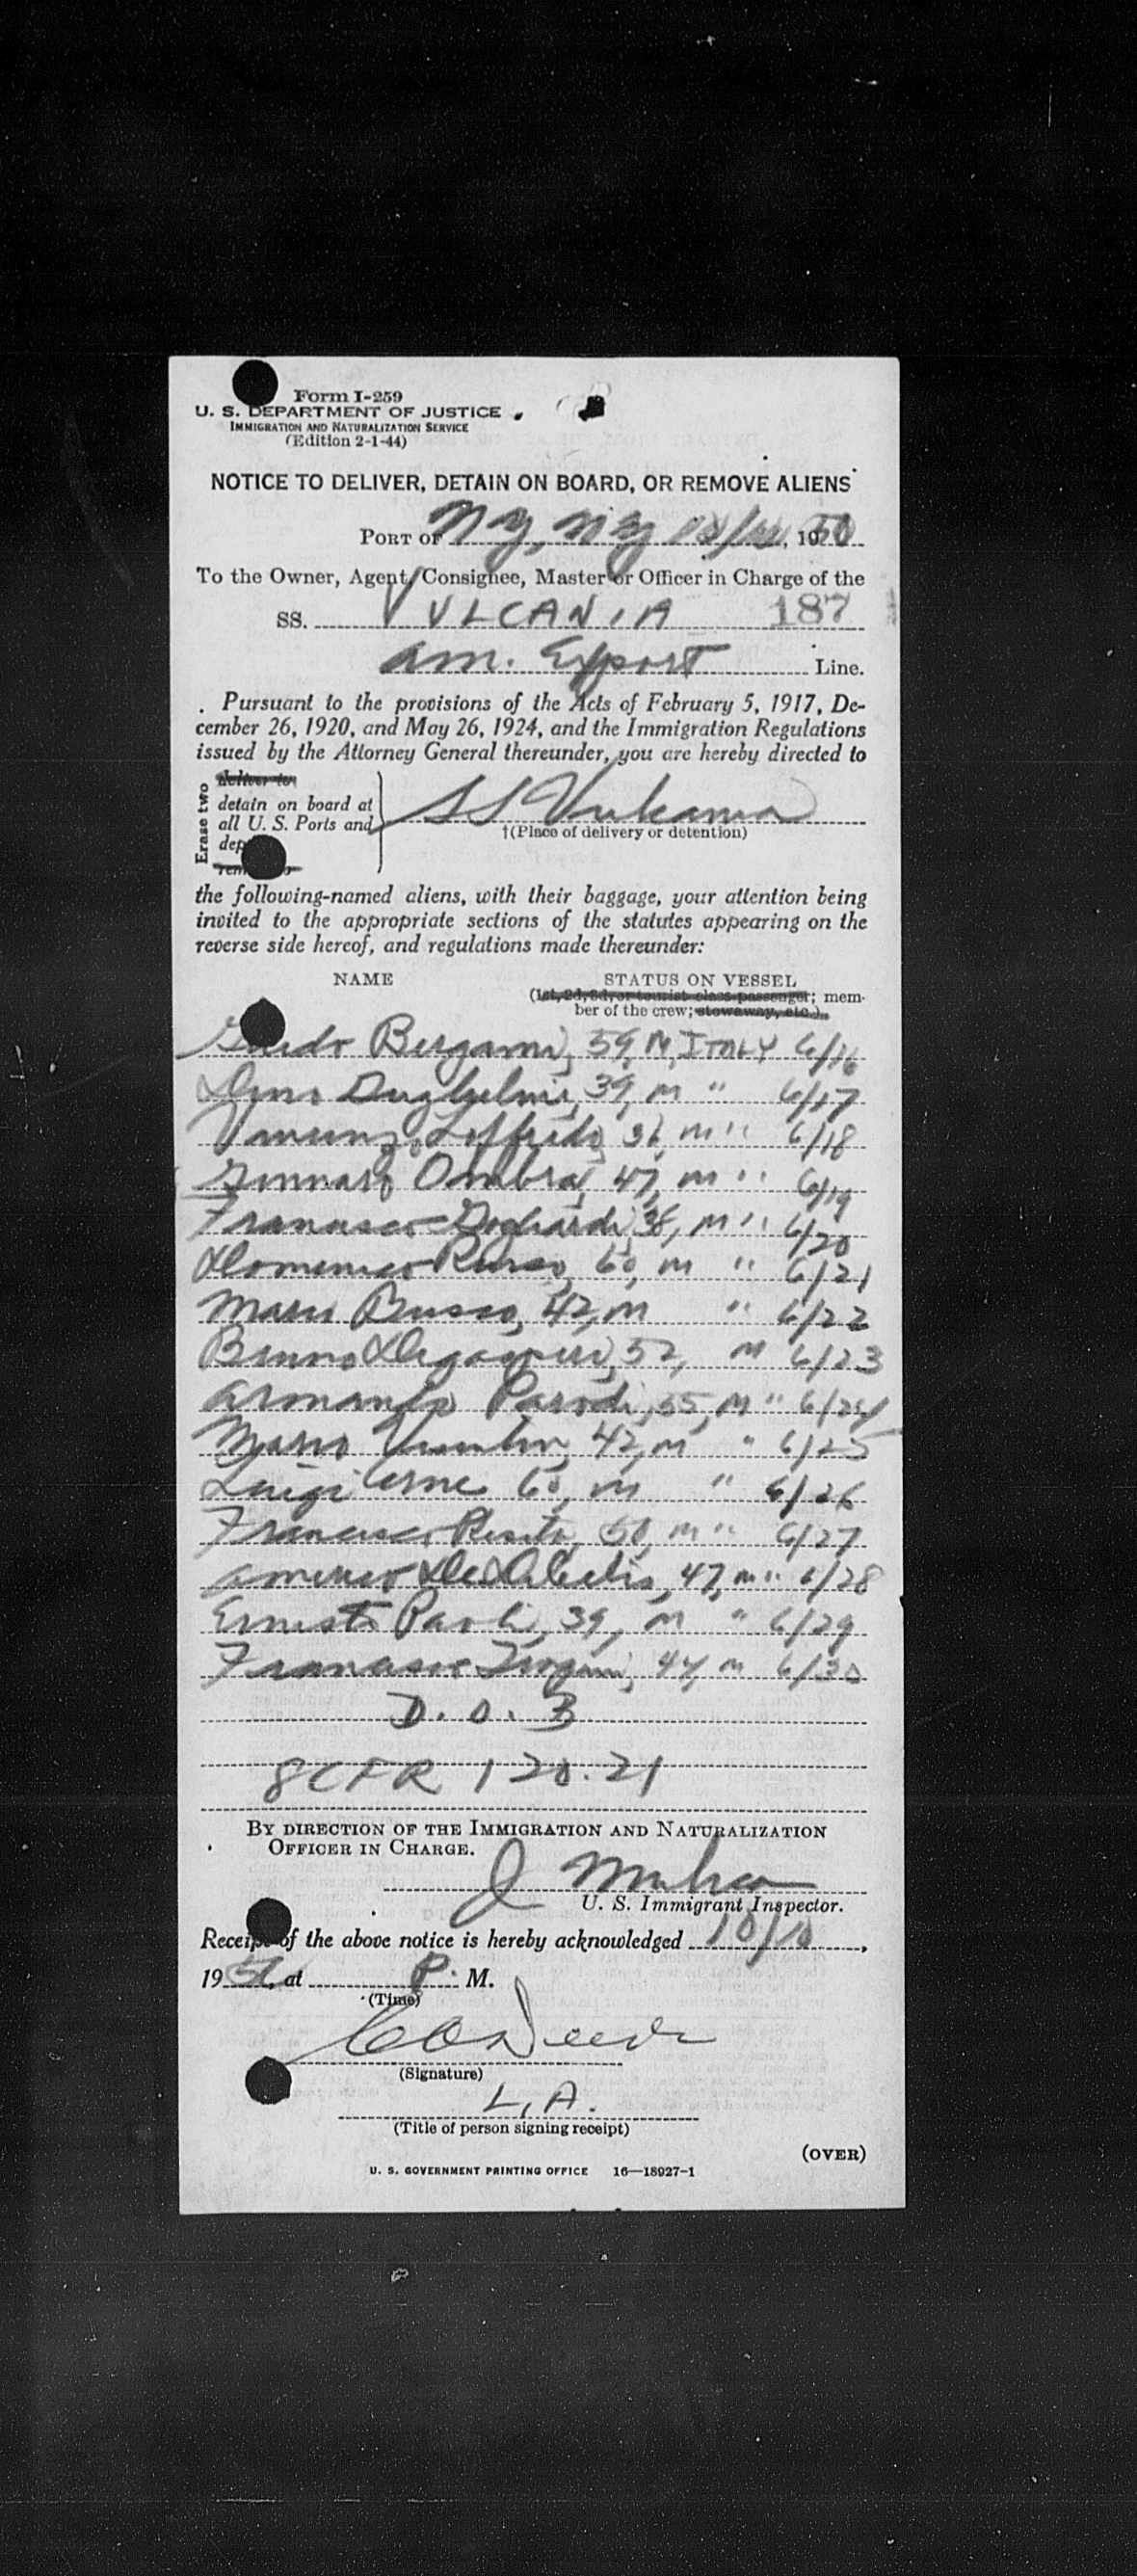 Form I-259
U. S. DEPARTMENT OF JUSTICE
IMMIGRATION AND NATURALIZATION SERVICE
(Edition 2-1-44)
NOTICE TO DELIVER, DETAIN ON BOARD, OR REMOVE ALIENS
PORT OF N Y, N Y, 1950
To the Owner, Agent, Consignee, Master or Officer in Charge of the
SS. VULCANIA 187
Am. Export Line.
Pursuant to the provisions of the Acts of February 5, 1917, De-
cember 26, 1920, and May 26, 1924, and the Immigration Regulations
issued by the Attorney General thereunder, you are hereby directed to
Erase two
deliver to
detain on board at
all U. S. Ports and
dep
SS Vulcania
†(Place of delivery or detention)
the following-named aliens, with their baggage, your attention being
invited to the appropriate sections of the statutes appearing on the
reverse side hereof, and regulations made thereunder:
NAME STATUS ON VESSEL
(1st, 2d, 3d, or tourist class passenger; mem-
ber of the crew; stowaway, etc.)
Guido Bergami, 59, M, ITALY 6/16
39, M " 6/17
Loffredo, 36, M " 6/18
Gennaro Ombra, 47, M " 6/19
Francesco 38, M " 6/20
Domenico Russo, 60, M " 6/21
Mario Busso, 42, M " 6/22
Bruno 52, " M 6/23
Armando Parodi, 55, M " 6/24
Mario 42, M " 6/25
Luigi 60, M " 6/26
Francesco 50, M " 6/27
Americo 47, M " 6/28
Ernesto Paoli, 39, M " 6/29
Francesco 44, M 6/30
D. O. B
8 CFR 120.21
BY DIRECTION OF THE IMMIGRATION AND NATURALIZATION
OFFICER IN CHARGE.
J
U. S. Immigrant Inspector.
Receipt of the above notice is hereby acknowledged 10/10,
19, at P. M.
(Time)
(Signature)
L. A.
(Title of person signing receipt)
(OVER)
U. S. GOVERNMENT PRINTING OFFICE 16—18927-1